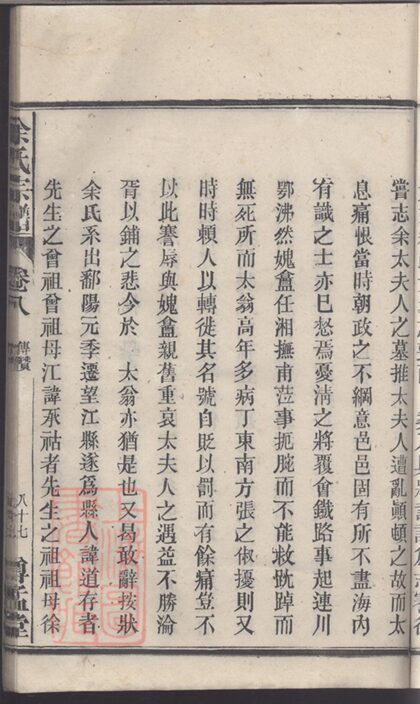 嘗志余太夫人之墓推太夫人遭亂顚頓之故而太
息痛恨當時朝政之不綱意邑邑固有所不盡海內
有識之士亦已愁焉憂淸之將覆會鐵路事起連川
鄂沸然媿盦任湘撫甫蒞事扼腕而不能救旣踔而
無死所而太翁高年多病丁東南方張之俶擾則又
時時頼人以轉徙其名號自貶以罰而有餘痛豈不
以此謇辱與媿盦親舊重哀太夫人之遇益不勝淪
胥以鋪之悲今於 太翁亦猶是也又曷敢辭按狀
余氏系出鄱陽元季遷望江縣遂爲縣人諱道存者
先生之曾祖曾祖母江諱永祜者先生之祖祖母徐
余氏宗譜
卷八
傳贊
八十七